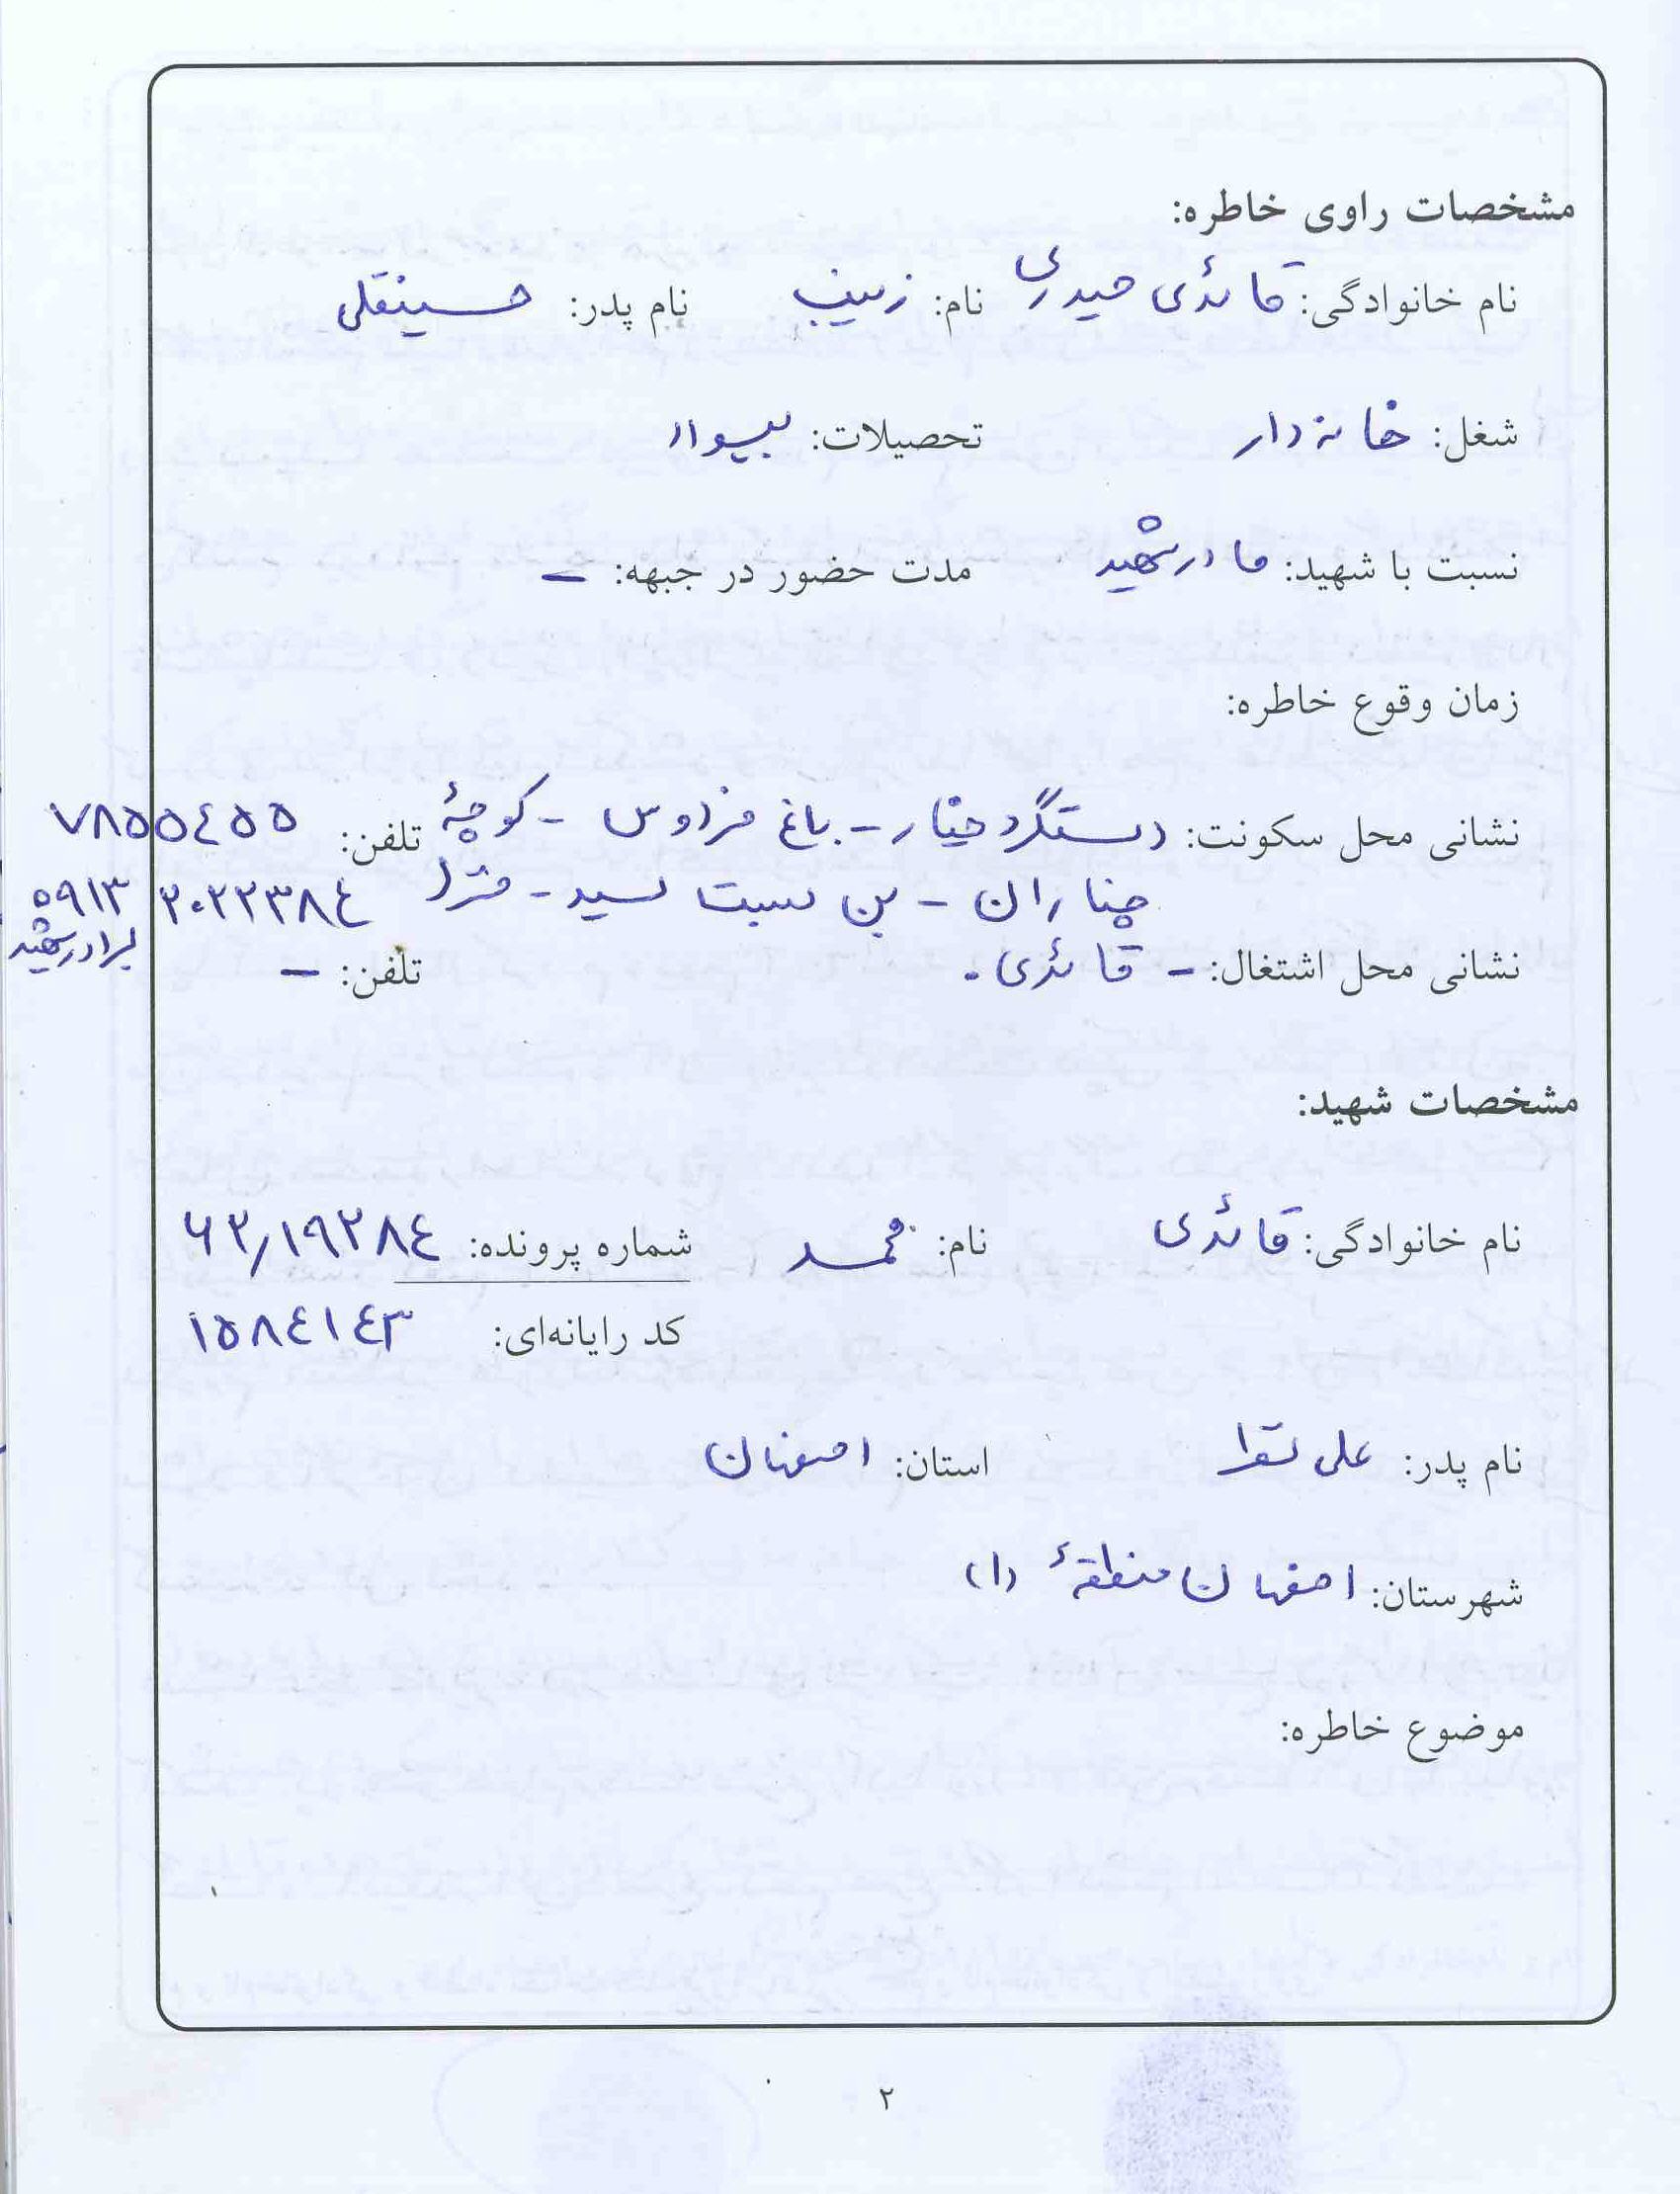 مشخصات راوی خاطره:
نام خانوادگی: قائدی حیدری نام: زینب نام پدر: حسینقلی
شغل: خانه دار تحصیلات: بیسواد
نسبت با شهید: مادر شهید مدت حضور در جبهه: –
زمان وقوع خاطره:
نشانی محل سکونت: دستگرد خیار – باغ فردوس – کوچهٔ تلفن: ۷۸۵۵٤۵۵
چناران – بن بست سید – منزل ۲۰۲۲۳۸٤ ۰۹۱۳
برادر شهید
نشانی محل اشتغال: – قائدی . تلفن: –
مشخصات شهید:
نام خانوادگی: قائدی نام: محمد شماره پرونده: ۶۲/۱۹۲۸٤
کد رایانه‌ای: ۱۵۸٤۱٤۳
نام پدر: علی استان: اصفهان
شهرستان: اصفهان منطقهٔ (۱)
موضوع خاطره:
۲